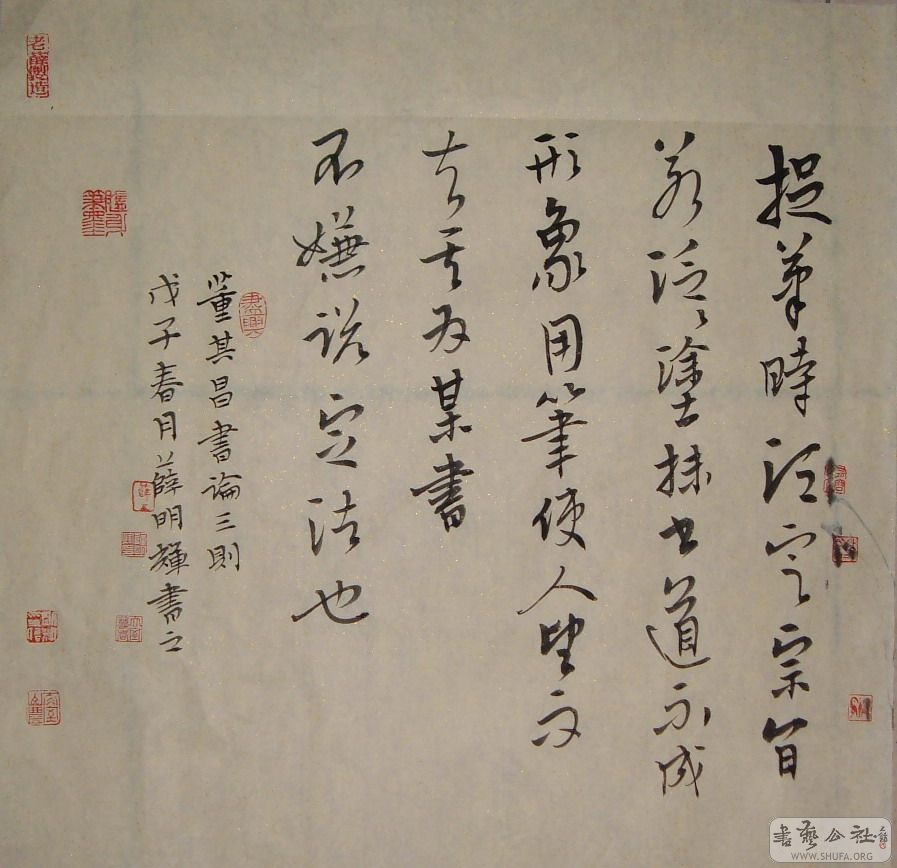 捉筆時須定宗旨
若泛泛塗抹書道不成
形象用筆使人望而
知其為某書
不嫌說定法也
董其昌書論三則
戊子春月薛明輝書之
書藝公社
WWW.SHUFA.ORG